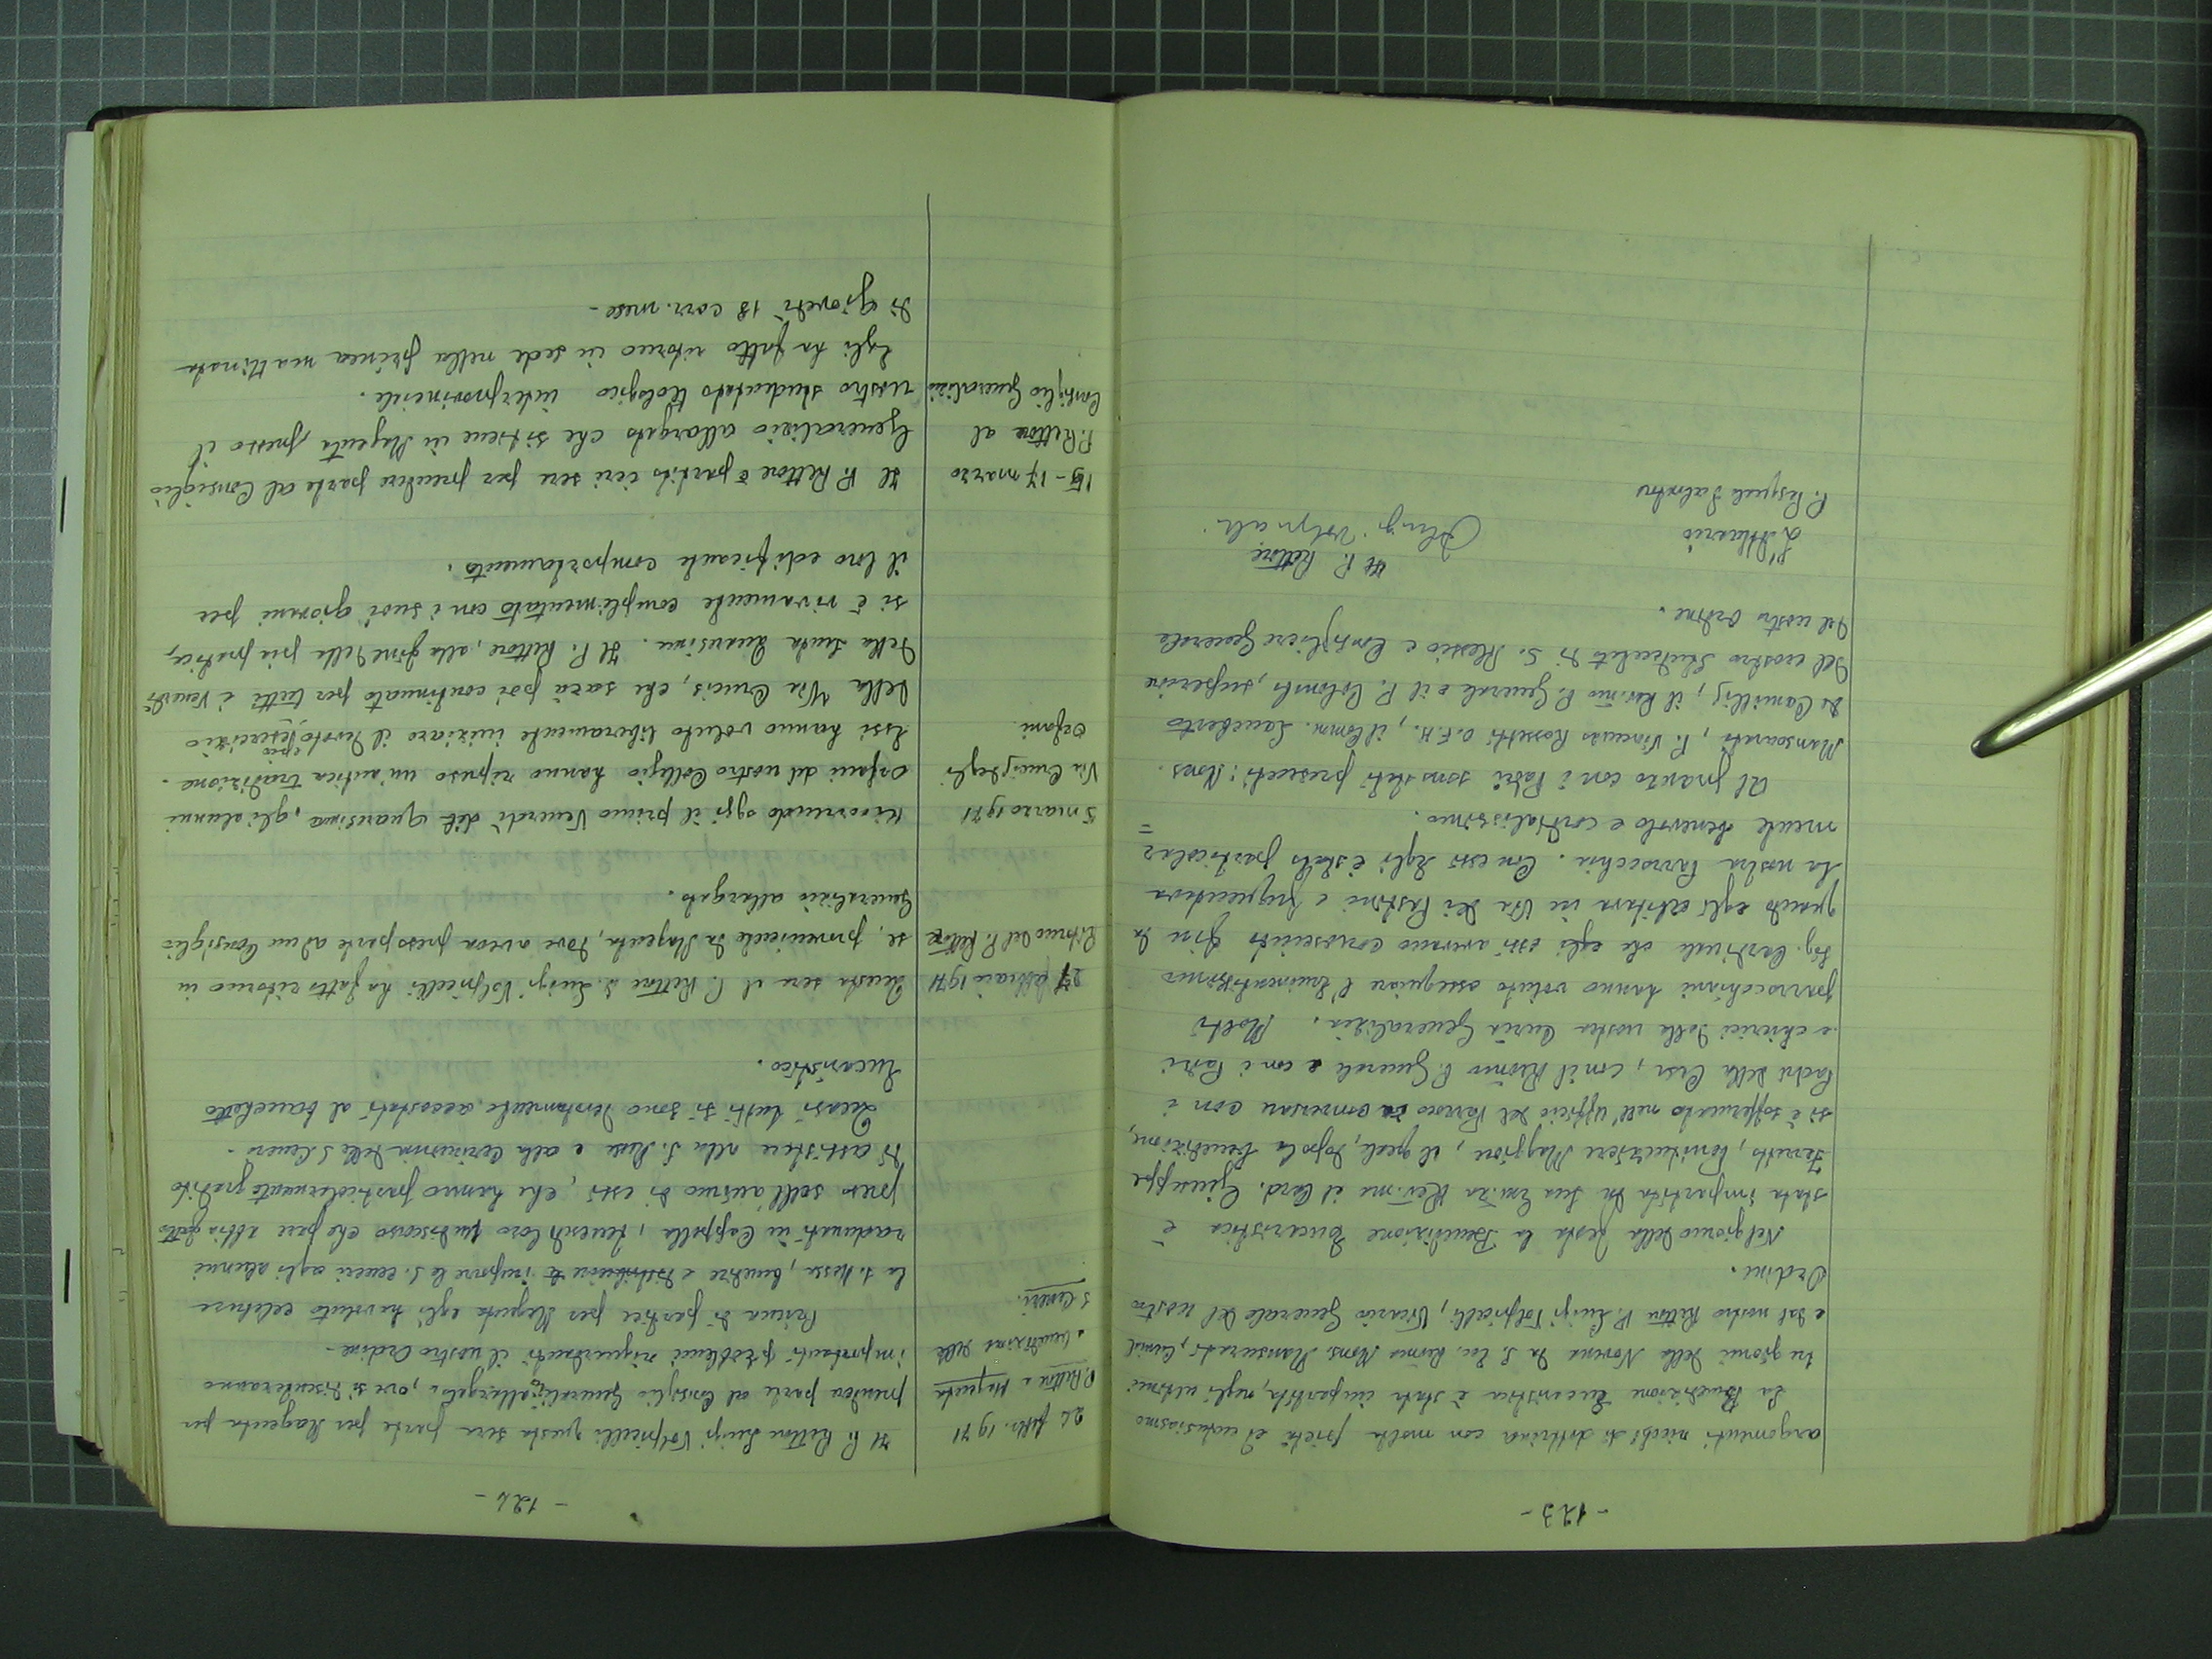 - 123 -
argomenti ricchi di dottrina con molta pietà ed entusiasmo
La Benedizione Eucaristica è stata impartita, negli ultimi
tre giorni della Novena da S. Ecc. Rev.ma Mons. Mansourati,
e dal nostro Rettore P. Luigi Volpicelli, Vicario Generale del nostro
Ordine.
Nel giorno della festa la Benedizione Eucaristica è
stata impartita da Sua Em.za Rev.ma il Card. Giuseppe
Ferretto, Penitenziere Maggiore, il quale, dopo la benedizione,
si è soffermato nell'Ufficio del Parroco a conversare con i
Padri della Casa, con il Rev.mo P. Generale e con i Padri
e chierici della nostra Curia Generalizia. Molti
parrocchiani hanno voluto ossequiare l'Eminentissimo
Sig. Cardinale che essi avevano conosciuto fin da
quando egli abitava in Via dei e frequentava
la nostra Parrocchia. Con essi Egli è stato particolar=
mente benevolo e cordialissimo.
Al pranzo con i Padri sono stati presenti: Mons.
Mansourati, P. Vincenzo Rossetti O.F.M., il Comm. Lamberto
de Camillis, il Rev.mo P. Generale e il P. Colombo, superiore
del nostro Studentato di S. Alessio e Consigliere Generale
del nostro Ordine.
L'Attuario
P. Pasquale Salvatore
Il P. Rettore
P. Luigi Volpicelli
- 124 -
24 febbr. 1971
P. Rettore a Magenta
e benedizione delle
S. Ceneri.
Il P. Rettore Luigi Volpicelli questa sera parte per Magenta per
prendere parte al Consiglio Generalizio allargato, ove si discuteranno
importanti problemi riguardanti il nostro Ordine.
Prima di partire per Magenta egli ha voluto celebrare
la S. Messa, benedire e distribuire imporre le S. ceneri agli alunni
radunati in Cappella, tenendo loro un discorso che pare abbia fatto
presa sull'animo di essi, che hanno particolarmente gradito
di assistere alla S. Messa e alla cerimonia delle S. Ceneri.
Quasi tutti si sono devotamente accostati al banchetto
Eucaristico.
27 febbraio 1971
Ritorno del P. Rettore
Questa sera il P. Rettore P. Luigi Volpicelli ha fatto ritorno in
se, proveniente da Magenta, dove aveva preso parte ad un Consiglio
Generalizio allargato.
5 marzo 1971
Via Crucis degli
Orfani.
Ricorrendo oggi il primo Venerdì di Quaresima, gli alunni
orfani del nostro Collegio hanno ripreso un'antica tradizione.
Essi hanno voluto liberamente iniziare il devoto pio esercizio
della Via Crucis, che sarà poi continuato per tutti i Venerdì
della Santa Quaresima. Il P. Rettore, alla fine della pia pratica,
si è vivamente complimentato con i suoi giovani per
il loro edificante comportamento.
15-17 marzo
P. Rettore al
Consiglio Generalizio
Il P. Rettore è partito ieri sera per prendere parte al Consiglio
Generalizio allargato che si tiene in Magenta presso il
nostro studentato teologico interprovinciale.
Egli ha fatto ritorno in sede nella prima mattinata
di Giovedì 18 corr. mese.